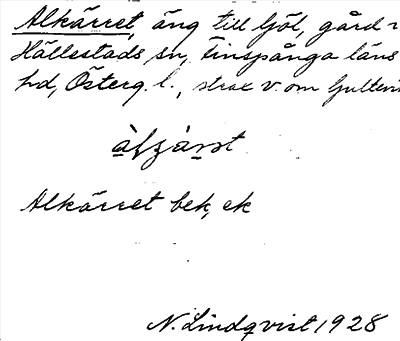 Alkärret, äng till Göl, gård i
Hällestads sn, Finspånga läns
hd, Österg. l., strax v. om
Alkärret bek, ek
N. Lindqvist 1928